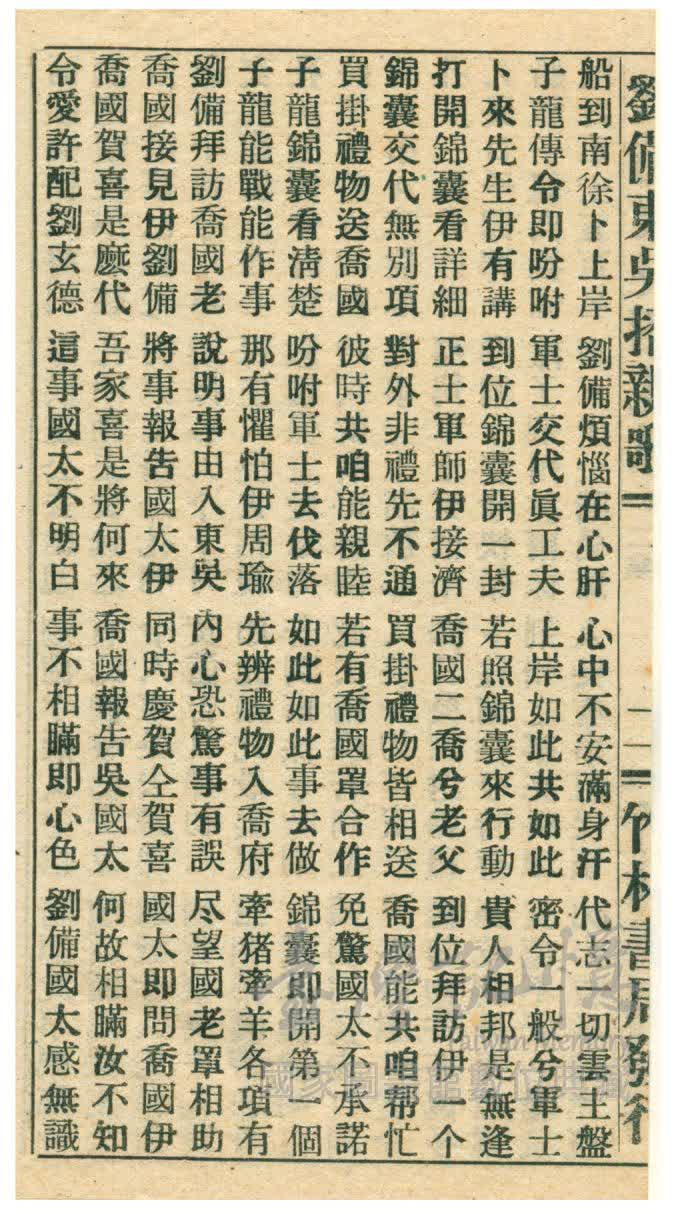 劉備東吳招親歌 二 竹林書局發行
船到南徐卜上岸 劉備煩惱在心肝 心中不安滿身汗 代志一切雲主盤
子龍傳令即吩咐 軍士交代眞工夫 上岸如此共如此 密令一般兮軍士
卜來先生伊有講 到位錦囊開一封 若照錦囊來行動 貴人相邦是無逢
打開錦囊看詳細 正士軍師伊接濟 喬國二喬兮老父 到位拜訪伊一个
錦囊交代無別項 對外非禮先不通 買掛禮物皆相送 喬國能共咱帮忙
買掛禮物送喬國 彼時共咱能親睦 若有喬國罩合作 免驚國太不承諾
子龍錦囊看淸楚 吩咐軍士去伐落 如此如此事去做 錦囊即開第一個
子龍能戰能作事 那有懼怕伊周瑜 先辨禮物入喬府 牽猪牽羊各項有
劉備拜訪喬國老 說明事由入東吳 內心恐驚事有誤 尽望國老罩相助
喬國接見伊劉備 將事報告國太伊 同時慶賀仝賀喜 國太即問喬國伊
喬國賀喜是麽代 吾家喜是將何來 喬國報告吳國太 何故相瞞汝不知
令愛許配劉玄德 這事國太不明白 事不相瞞即心色 劉備國太感無識